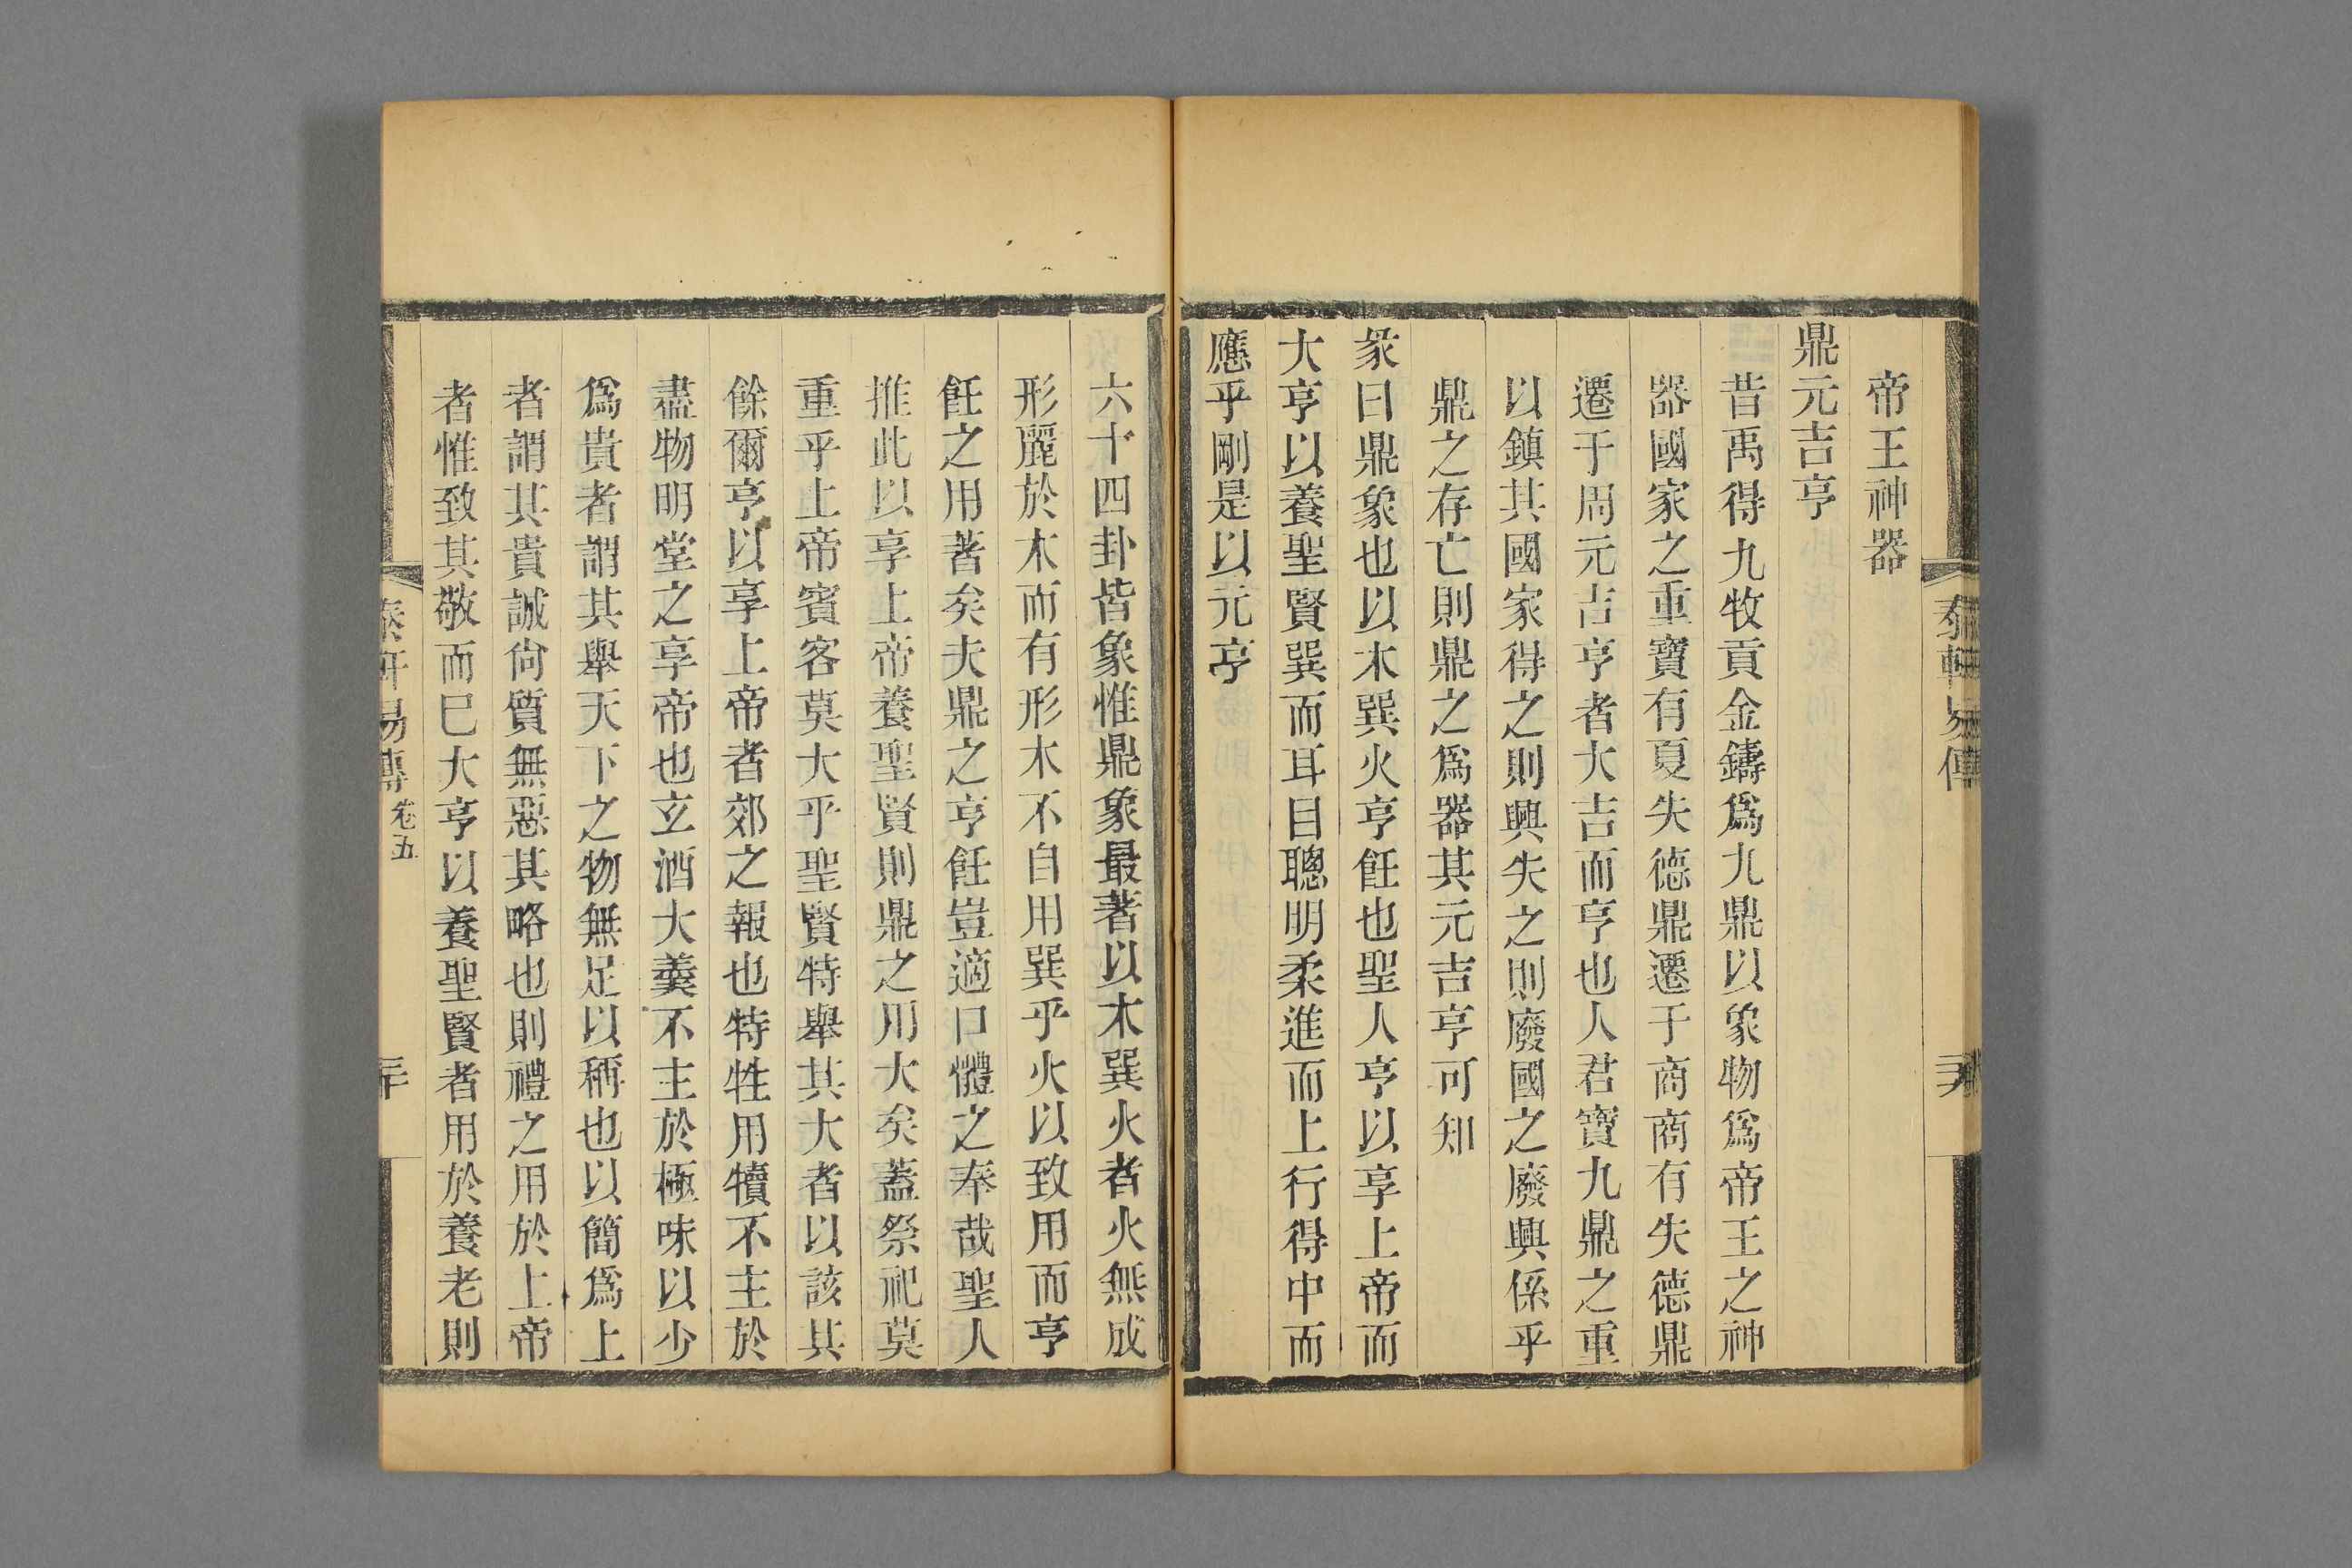 帝王神器
鼎元吉亨
昔禹得九牧貢金鑄爲九鼎以象物爲帝王之神
器國家之重寶有夏失德鼎遷于商商有失德鼎
遷于周元吉亨者大吉而亨也人君寶九鼎之重
以鎮其國家得之則興失之則廢國之廢興係乎
鼎之存亡則鼎之爲器其元吉亨可知
彖曰鼎象也以木巽火亨飪也聖人亨以享上帝而
大亨以養聖賢巽而耳目聰明柔進而上行得中而
應乎剛是以元亨
六十四卦皆象惟鼎象最著以木巽火者火無成
形麗於木而有形木不自用巽乎火以致用而亨
飪之用著矣夫鼎之亨飪豈適口體之奉哉聖人
推此以享上帝養聖賢則鼎之用大矣蓋祭祀莫
重乎上帝賓客莫大乎聖賢特舉其大者以該其
餘爾亨以享上帝者郊之報也特牲用犢不主於
盡物明堂之享帝也玄酒大羹不主於極味以少
爲貴者謂其舉天下之物無足以稱也以簡爲上
者謂其貴誠尙質無惡其略也則禮之用於上帝
者惟致其敬而巳大亨以養聖賢者用於養老則
易傳 卷五